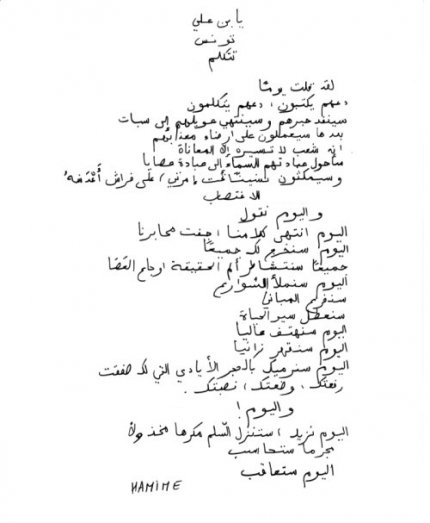 يا بن علي
تونس
تتكلم
لقد قلت يومًا
دعهم يكتبون، دعهم يتكلمون
سينفد حبرهم وسينتهي عويلهم إلى سبات
بعدها سيعملون على إرضاء معذبهم
إنه شعب لا تسيره إلا المعاناة
سأحول عبادتهم السماء إلى عبادة عصايا
وسيمكثون تحت (بأمري) على فراش أعده
الاغتصاب
واليوم نقول
اليوم انتهى كلامنا، جفت محابرنا
اليوم سنخرج لك جميعًا
جميعًا سنتشاطر ألم الحقيقة أوجاع العصا
اليوم سنملأ الشوارع
المباني
سنعطل سير الحياة
اليوم سنهتف عاليا
اليوم سنقهر
اليوم سنرميك بالحجر الأيادي التي لك صفقت
رفعتك، وضعتك، نصبتك.
واليوم!
اليوم نزيد، ستنزل السلم مكرها مخذولا
مجرما ستحاسب
اليوم ستعاقب
HAMIME